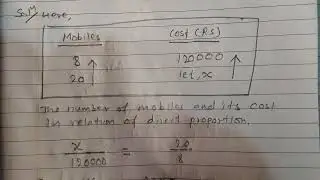 Solⁿ Here,
Mobiles Cost (RS)
8 120000
20 let, x
The number of mobiles and its cost
in relation of direct proportion,
x/120000 = 20/8